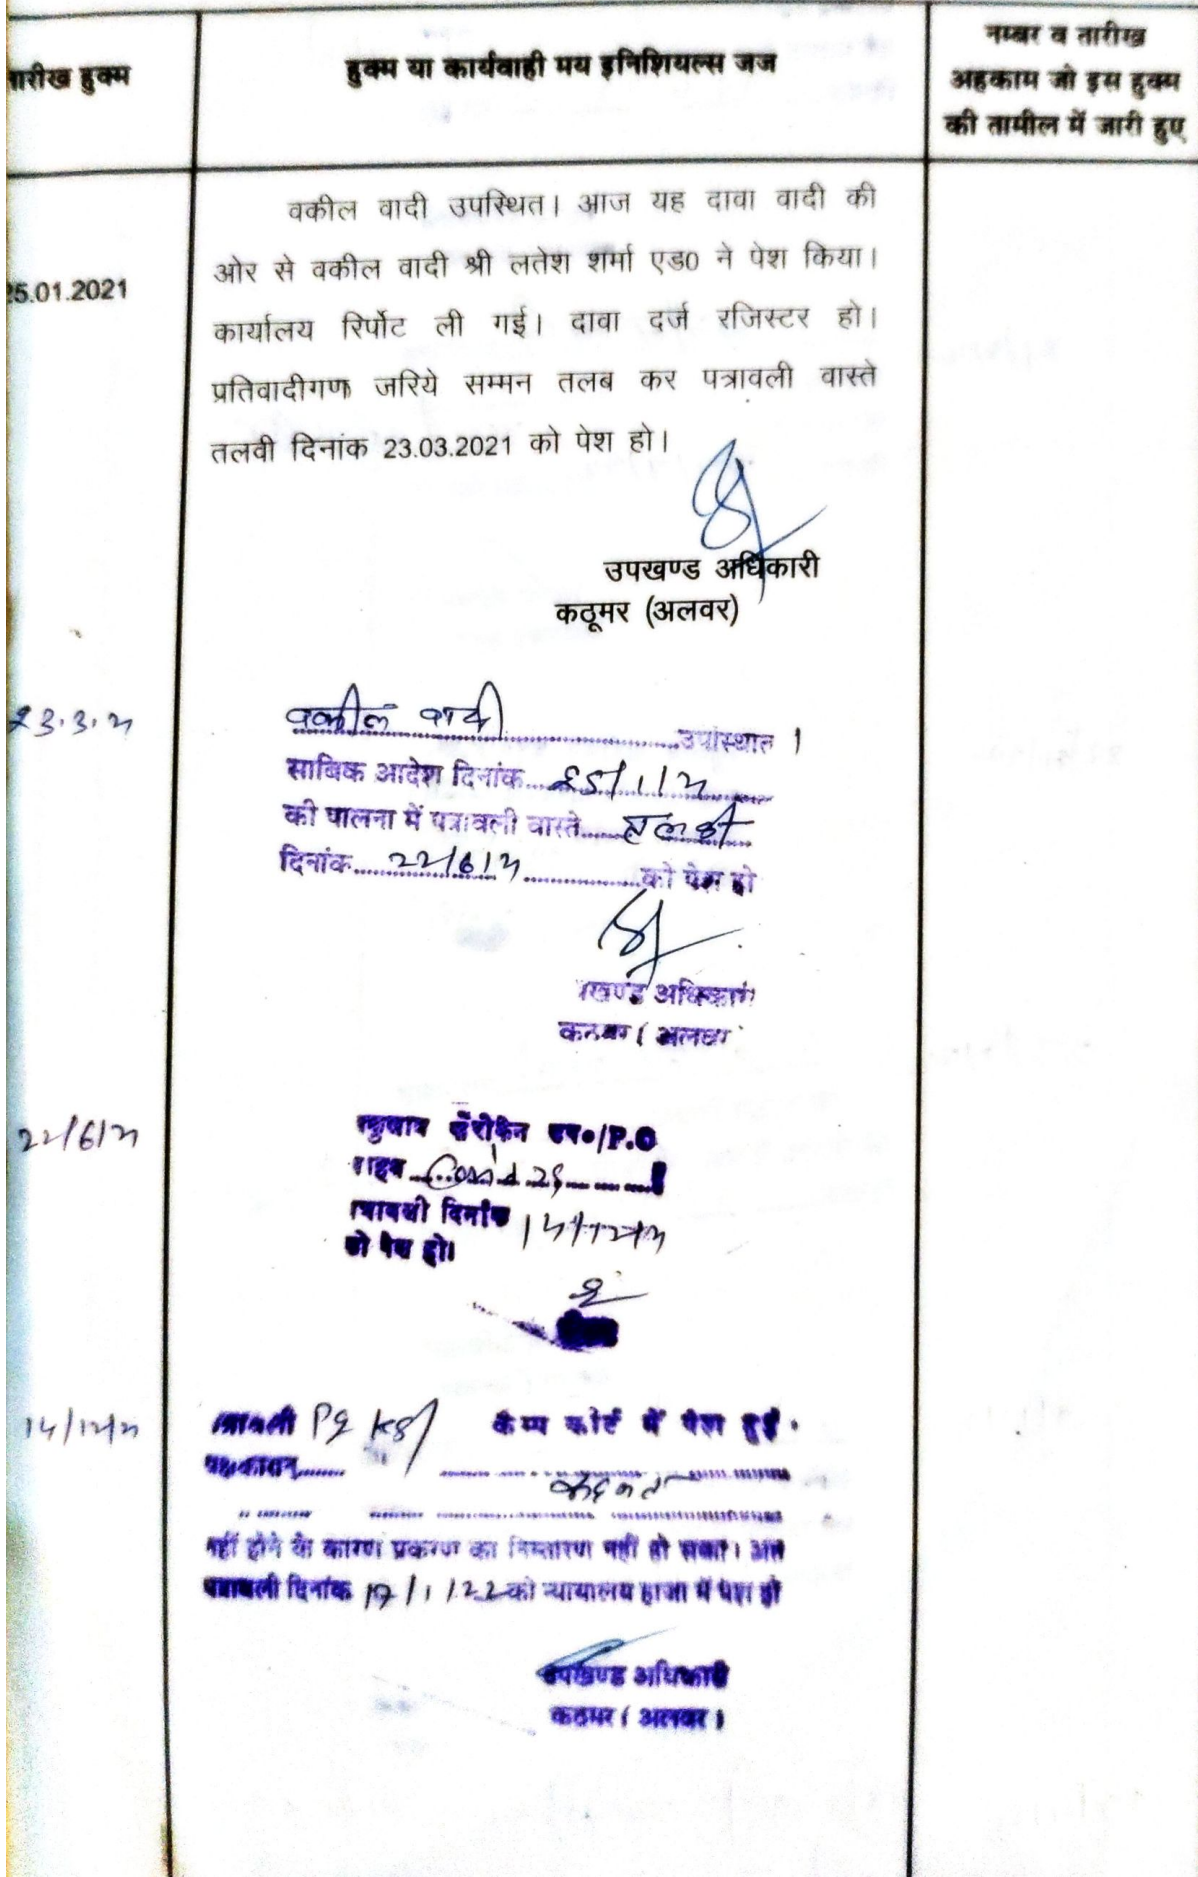 तारीख हुक्म
हुक्म या कार्यवाही मय इनिशियल्स जज
नम्बर व तारीख
अहकाम जो इस हुक्म
की तामील में जारी हुए
25.01.2021
वकील वादी उपस्थित। आज यह दावा वादी की
ओर से वकील वादी श्री लतेश शर्मा एड0 ने पेश किया।
कार्यालय रिर्पोट ली गई। दावा दर्ज रजिस्टर हो।
प्रतिवादीगण जरिये सम्मन तलब कर पत्रावली वास्ते
तलवी दिनांक 23.03.2021 को पेश हो।
उपखण्ड अधिकारी
कठूमर (अलवर)
23.3.21
वकील वादी उपस्थित ।
साबिक आदेश दिनांक 25/1/21
की पालना में पत्रावली वास्ते तलवी
दिनांक 22/6/21 को पेश हो
खण्ड अधिकारी
कठूमर ( अलवर
22/6/21
/P.O
Covid
दिनांक 14/12/21
को पेश हो।
14/12/21
पत्रावली कैम्प कोर्ट में पेश हुई
नहीं होने के कारण प्रकरण का निस्तारण नहीं हो सका। अतः
पत्रावली दिनांक 17/1/22 को न्यायालय हाजा में पेश हो
उपखण्ड अधिकारी
कठूमर ( अलवर )